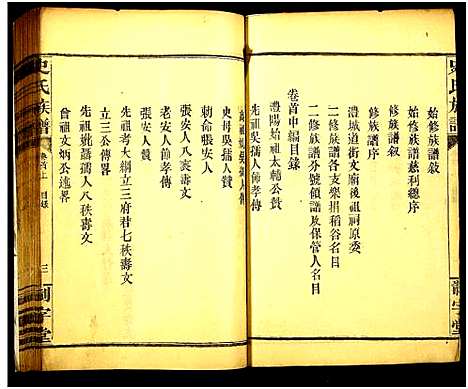 史氏族譜
始修族譜敘
始修族譜慈利總序
修族譜敘
修族譜序
澧城道街文廟後祖祠原委
二修族譜各支樂捐稻谷名目
二修族譜分號領譜以及保管人名目
卷首中編目錄
澧陽始祖太輔公贊
先祖吳孺人節孝傳
史母吳孺人傳
張安人
張安人八袠壽文
老安人節孝傳
立三公傳畧
先祖考大綱立三府君七秩壽文
先祖妣蕭孺人八秩壽文
曾祖文炳公逸畧
史氏族譜
卷首上
目錄
三
創守堂